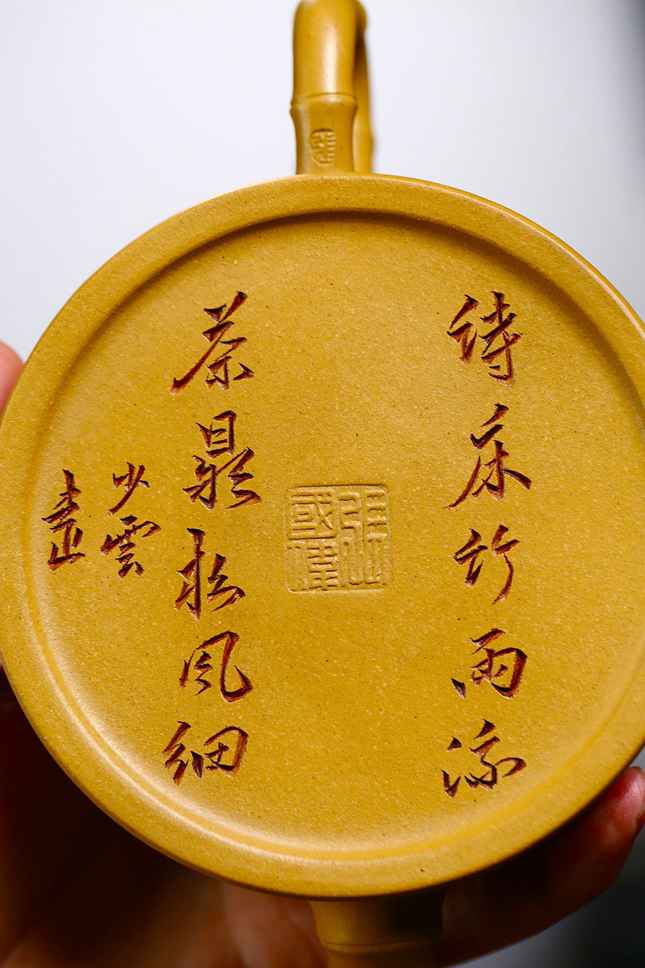 詩床竹雨涼
茶鼎松風細
少雲
張國偉